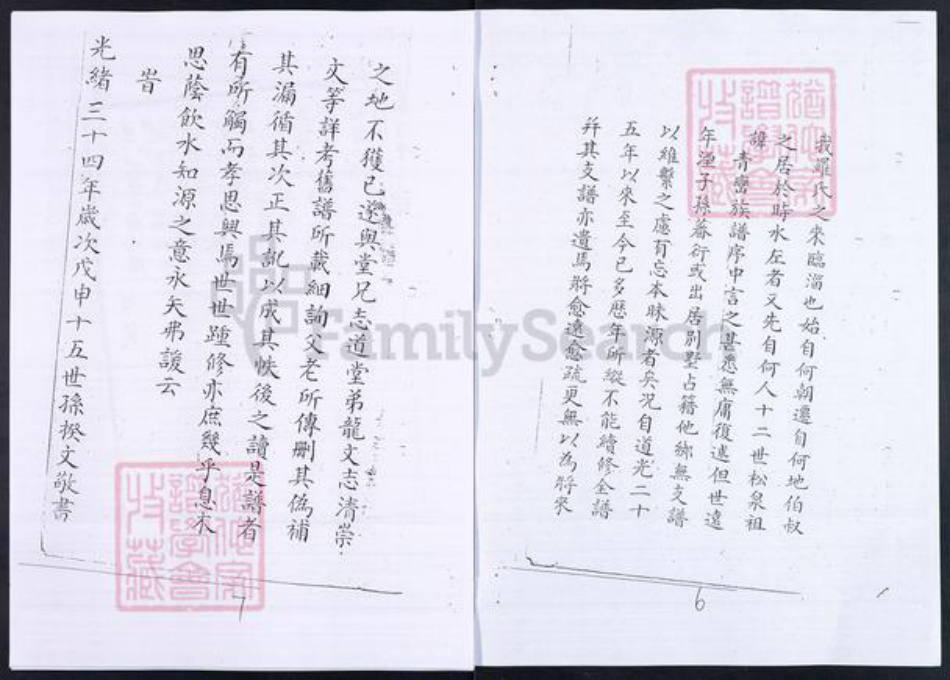 我羅氏之來臨淄也始自何朝遷自何地伯叔
之居於時水左者又先自何人十二世松泉祖
諱青巒族譜序中言之甚悉無庸復述但世遠
年湮子孫蕃衍或出居別墅占籍他鄉無支譜
以維繫之慮有忘本昧源者矣況自道光二十
五年以來至今已多歷年所縱不能續修全譜
幷其支譜亦遺焉將愈遠愈疏更無以為將來
6
之地不獲已遂與堂兄志道堂弟龍文志清崇
文等詳考舊譜所載細詢父老所傳刪其偽補
其漏循其次正其訛以成其帙後之讀是譜者
有所觸而孝思興焉世世踵修亦庶幾乎息木
思蔭飲水知源之意永矢弗諼云
峕
光緒三十四年歲次戊申十五世孫揆文敬書
7
FamilySearch